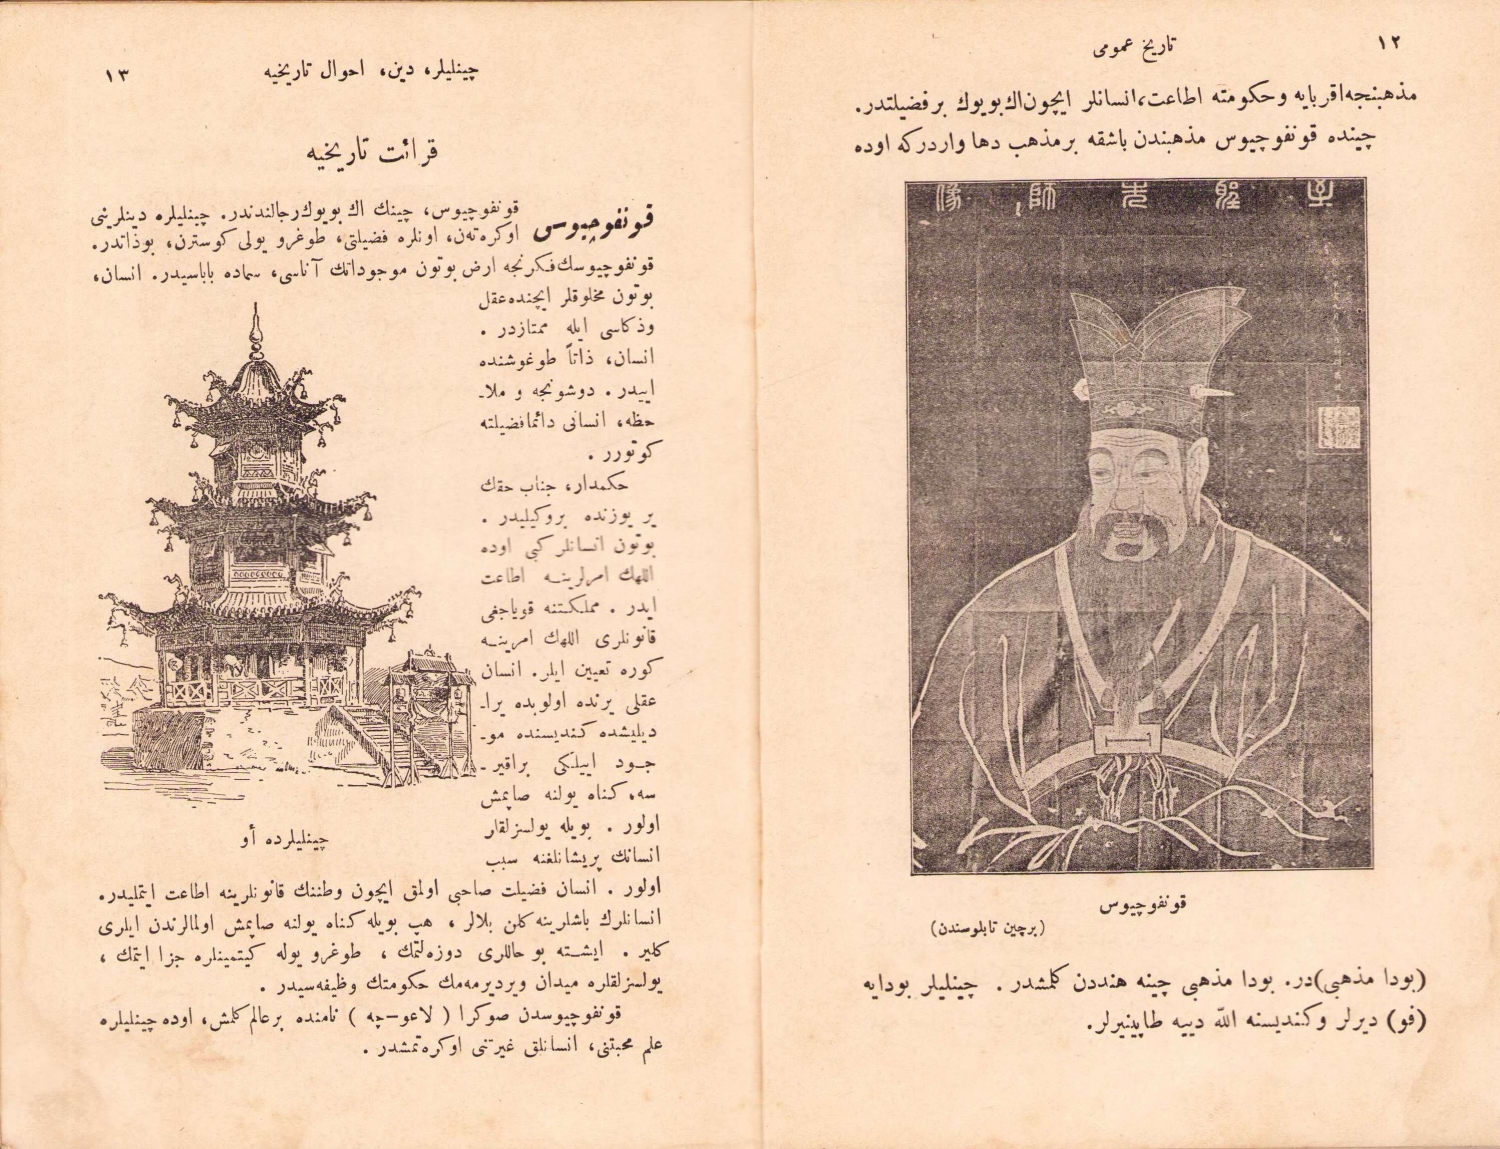 ١٢
تاريخ عمومى
مذهبنجه اقربايه وحكومته اطاعت، انسانلر ايچون اك بويوك برفضيلتدر.
چينده قونفوچيوس مذهبندن باشقه برمذهب دها واردركه اوده
師 像
قونفوچيوس
(برچين تابلوسندن)
(بودا مذهبى) در. بودا مذهبى چينه هنددن كلمشدر. چينليلر بودايه
(فو) ديرلر وكنديسنه الله دييه طاپينيرلر.
چينليلر، دين، احوال تاريخيه
١٣
قرائت تاريخيه
قونفوچيوس
قونفوچيوس، چينك اك بويوك رجالندندر. چينليلره دينلرينى
اوكره‌تن، اونلره فضيلتى، طوغرو يولى كوسترن، بوذاتدر.
قونفوچيوسك فكرنجه ارض بوتون موجوداتك آناسى، سماده باباسيدر. انسان،
بوتون مخلوقلر ايچنده عقل
وذكاسى ايله ممتازدر.
انسان، ذاتاً طوغوشنده
اييدر. دوشونجه و ملا-
حظه، انسانى دائما فضيلته
كوتورر.
حكمدار، جناب حقك
ير يوزنده بروكيليدر.
بوتون انسانلر كبى اوده
اللهك امرلرينه اطاعت
ايدر. مملكتنه قوياجغى
قانونلرى اللهك امرينه
كوره تعيين ايلر. انسان
عقلى يرنده اولوبده يرا-
ديليشده كنديسنده مو-
جود اييلكى براقير-
سه، كناه يولنه صاپمش
اولور. بويله يولسزلقلر
انسانك پريشانلغنه سبب
اولور. انسان فضيلت صاحبى اولمق ايچون وطننك قانونلرينه اطاعت ايتمليدر.
انسانلرك باشلرينه كلن بلالر، هپ بويله كناه يولنه صاپمش اولمالرندن ايلرى
كلير. ايشته بو حاللرى دوزه‌لتمك، طوغرو يوله كيتميينلره جزا ايتمك،
يولسزلقلره ميدان ويرديرمه‌مك حكومتك وظيفه‌سيدر.
قونفوچيوسدن صوكرا (لاعو-چه) نامنده برعالم كلمش، اوده چينليلره
علم محبتنى، انسانلق غيرتنى اوكره‌تمشدر.
چينليلرده أو